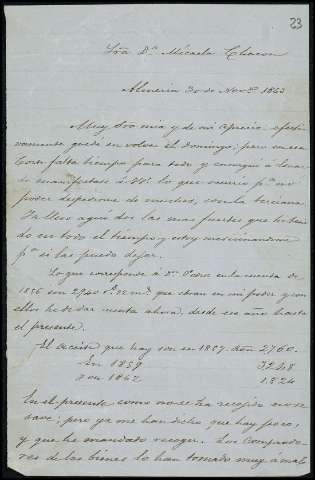 53
Sra Dª Micaela Chacon
Almeria 30 de Novbe 1863
Muy Sra mia y de mi aprecio: efecti
vamente quedé en volver el domingo, pero en esa
Corte falta tiempo para todo y encargué á
manifestase á V. lo que ocurrió pª no
poder despedirme de ustedes, con la terciana
llevo aquí dos las mas fuertes que he teni
do en todo el tiempo y estoy medicinandome
pª si las puedo dejar.
Lo que corresponde á Dn Pedro en la cuenta de
1856 son 2740 rs mn que obran en mi poder y con
ellos he de dar cuenta ahora, desde ese año hasta
el presente.
El aceite que hay son en 1857 2760.
En 1859 3228
Y en 1862 1824
En el presente como no se ha recogido no se
sabe, pero ya me han dicho que hay poco,
y que he mandado recoger. Los comprado
res de las bienes lo han tomado muy á mal